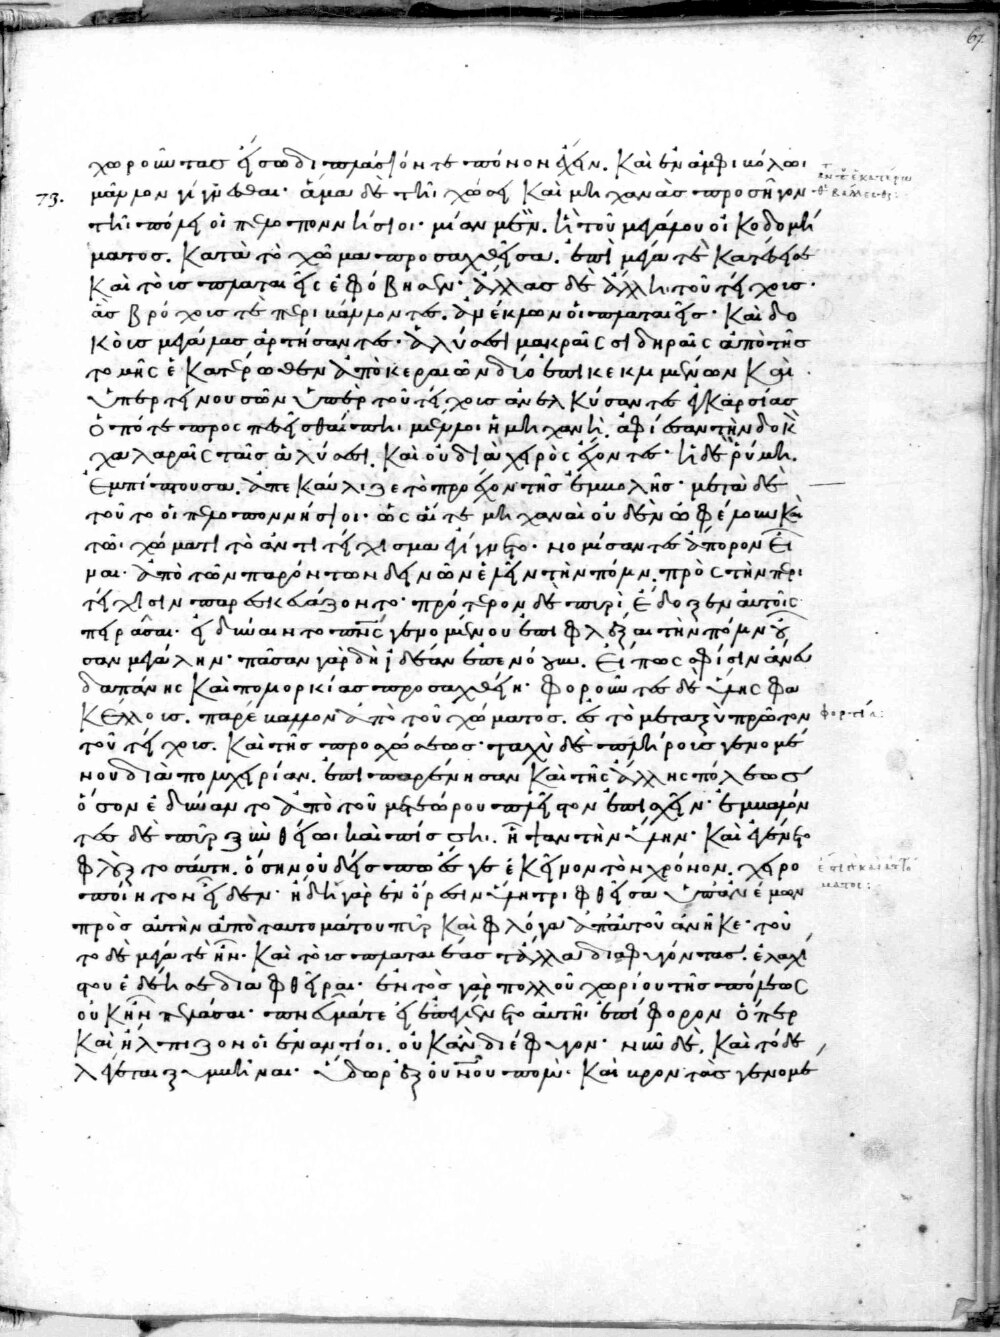 67
χωροῦντας ἔσω διπλάσιόν τε πόνον ἔχειν. καὶ ἐν ἀμφιβόλωι
73. μᾶλλον γίγνεσθαι· ἅμα δὲ τῆι χώσει καὶ μηχανὰς προσῆγον
τῆι πόλει οἱ πελοποννήσιοι· μίαν μὲν. ἣ τοῦ μεγάλου οἰκοδομή
ματος. κατὰ τὸ χῶμα προσαχθεῖσα. ἐπὶ μέγα τὲ κατέσεισε
καὶ τοὺς πλαταιεῖς ἐφόβησεν· ἄλλας δὲ ἄλλη τοῦ τείχους·
ἃς βρόχους τὲ περιβάλλοντες. ἀνέκλων οἱ πλαταιεῖς· καὶ δο
κοὺς μεγάλας ἀρτήσαντες· ἁλύσεσι μακραῖς σιδηραῖς ἀπὸ τῆς
τομῆς ἑκατέρωθεν ἀπὸ κεραιῶν δύο ἐπικεκλιμένων καὶ
ὑπερτεινουσῶν ὑπὲρ τοῦ τείχους ἀνελκύσαντες ἐγκαρσίας
ὁπότε προσπεσεῖσθαί πηι μέλλοι ἡ μηχανή. ἀφίεσαν τὴν δοκὸν
χαλαραῖς ταῖς ἁλύσεσι. καὶ οὐ διὰ χειρὸς ἔχοντες· ἡ δὲ ῥύμη.
ἐμπίπτουσα. ἀπεκαύλιζε τὸ προέχον τῆς ἐμβολῆς· μετὰ δὲ
τοῦτο οἱ πελοποννήσιοι· ὡς αἵ τε μηχαναὶ οὐδὲν ὠφέλουν καὶ
τῶι χώματι τὸ ἀντιτείχισμα ἐγίγνετο· νομίσαντες ἄπορον εἶ
ναι· ἀπὸ τῶν παρόντων δεινῶν ἑλεῖν τὴν πόλιν. πρὸς τὴν περι
τείχισιν παρεσκευάζοντο· πρότερον δὲ πυρὶ ἔδοξεν αὐτοῖς
πειρᾶσαι· εἰ δύναιντο πνεύματος γενομένου ἐπιφλέξαι τὴν πόλιν οὖ
σαν μεγάλην· πᾶσαν γὰρ δὴ ἰδέαν ἐπενόουν. εἴ πως σφίσιν ἄνευ
δαπάνης καὶ πολιορκίας προσαχθείη· φοροῦντες δὲ ὕλης φα
κέλλους. παρέβαλλον ἀπὸ τοῦ χώματος. ἐς τὸ μεταξὺ πρῶτον
τοῦ τείχους. καὶ τῆς προσχώσεως· ταχὺ δὲ πλήρους γενομέ
νου διὰ πολυχειρίαν. ἐπιπαρένησαν καὶ τῆς ἄλλης πόλεως
ὅσον ἐδύναντο ἀπὸ τοῦ μετεώρου πλεῖστον ἐπισχεῖν· ἐμβαλόν
τες δὲ πῦρ ξὺν θείωι καὶ πίσσηι. ἧψαν τὴν ὕλην· καὶ ἐγένετο
φλὸξ τοσαύτη. ὅσην οὐδείς πω ἔς γε ἐκεῖνον τὸν χρόνον. χειρο
ποίητον εἶδεν· ἤδη γὰρ ἐν ὄρεσιν ὕλη τριφθεῖσα ὑπ' ἀνέμων
πρὸς αὑτὴν ἀπὸ ταυτομάτου πῦρ καὶ φλόγα ἀπ' αὐτοῦ ἀνῆκε· τοῦ
το δὲ μέγα τὲ ἦν. καὶ τοὺς πλαταιέας τἄλλα διαφυγόντας. ἐλαχί
στου ἐδέησε διαφθεῖραι· ἐντὸς γὰρ πολλοῦ χωρίου τῆς πόλεως
οὐκ ἦν πελάσαι· πνεῦμά τε εἰ ἐπεγένετο αὐτῆι ἐπίφορον ὅπερ
καὶ ἤλπιζον οἱ ἐναντίοι. οὐκ ἂν διέφυγον· νῦν δὲ. καὶ τόδε
λέγεται ξυμβῆναι· ὕδωρ ἐξ οὐρανοῦ πολὺ· καὶ βροντὰς γενομέ